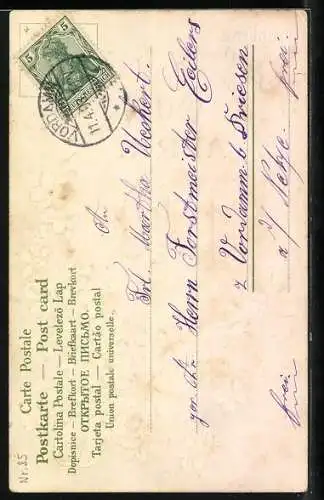 Carte Postale
Postkarte — Post card
Cartolina Postale — Levelező Lap
Dopisnice — Brefkort — Briefkaart — Brevkort
ОТКРЫТОЕ ПИСЬМО.
Tarjeta postal — Cartão postal
Union postale universelle.
Nr. 25
5
5
VORDAMM
11.4.
An
Frl. Martha Ueckert.
Herrn Forstmeister Eilers
z Vordamm b Driesen
a/ Netze.
frei